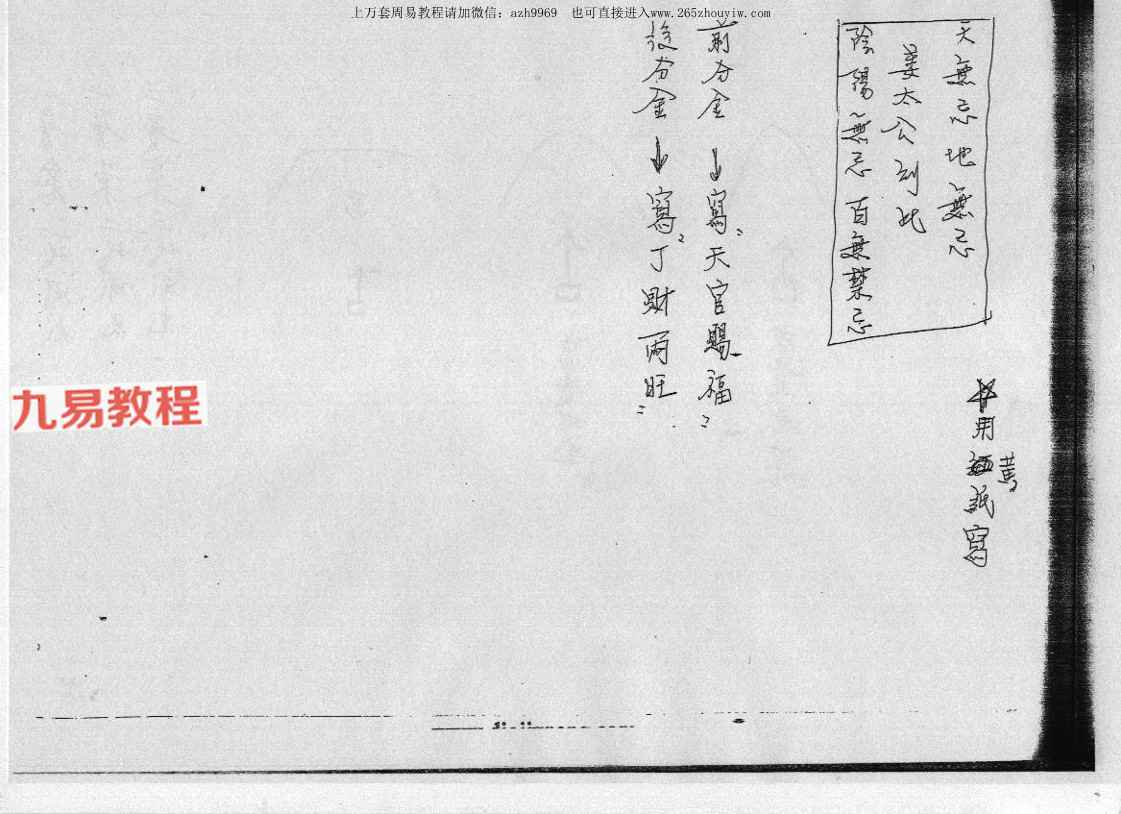 上万套周易教程请加微信：azh9969　也可直接进入www.265zhouyiw.com
天無忌地無忌
姜太公到此
陰陽無忌百無禁忌
用黃紙寫
前分金→寫"天官賜福"
後分金→寫"丁財兩旺"
九易教程